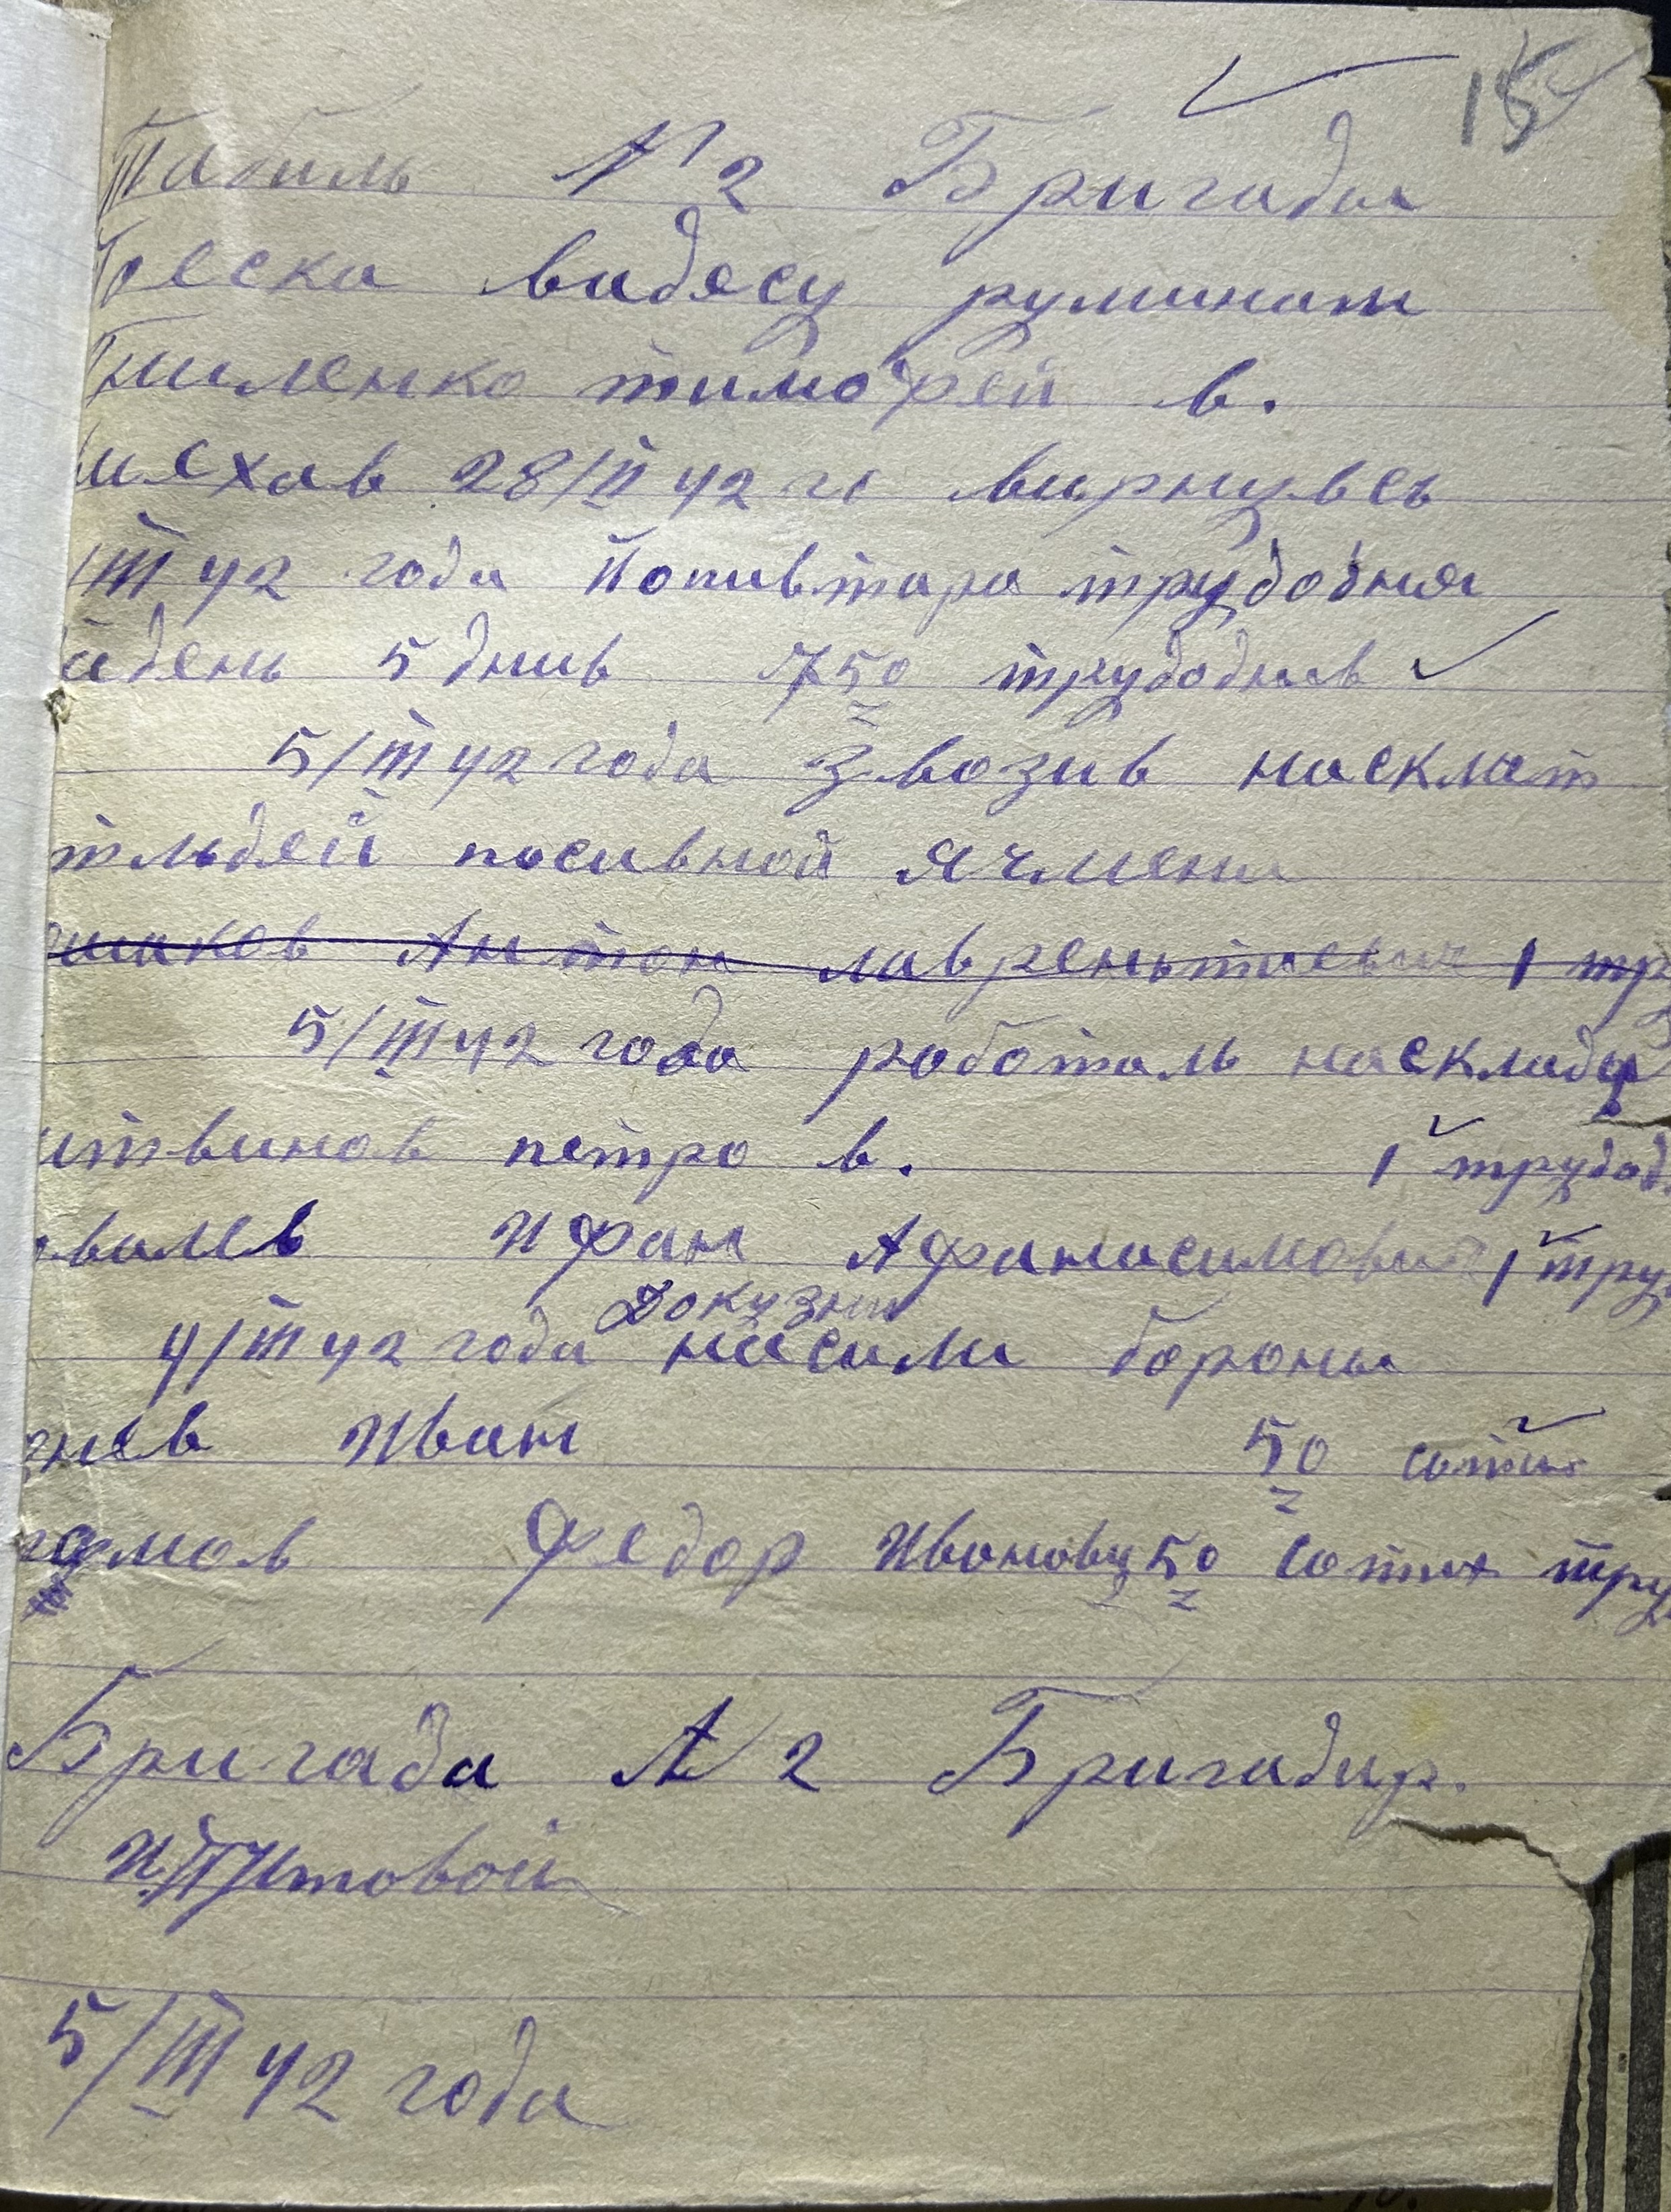 15
Табиль № 2 Бригады
Поеска видесу руминам
Тимофей в.
28/II 42 го вирнувсь
/III 42 года Попивтара трудодня
йдень 5 днив 7 50 трудоднив
5/III 42 года Звозив насклат
тльдей посивной ячмень
маков Антон лаврентиевич 1 тр
5/III 42 года роботаль наскладу
итвинов петро в. 1 трудод.
валев Ифан Афанасимович 1 тру
Докузни
4/III 42 года насили бороны
нев Иван 50 сотих
Федор Ивонович 50 сотих тру
Бригада № 2 Бригадир.
И. Питовой
5/III 42 года